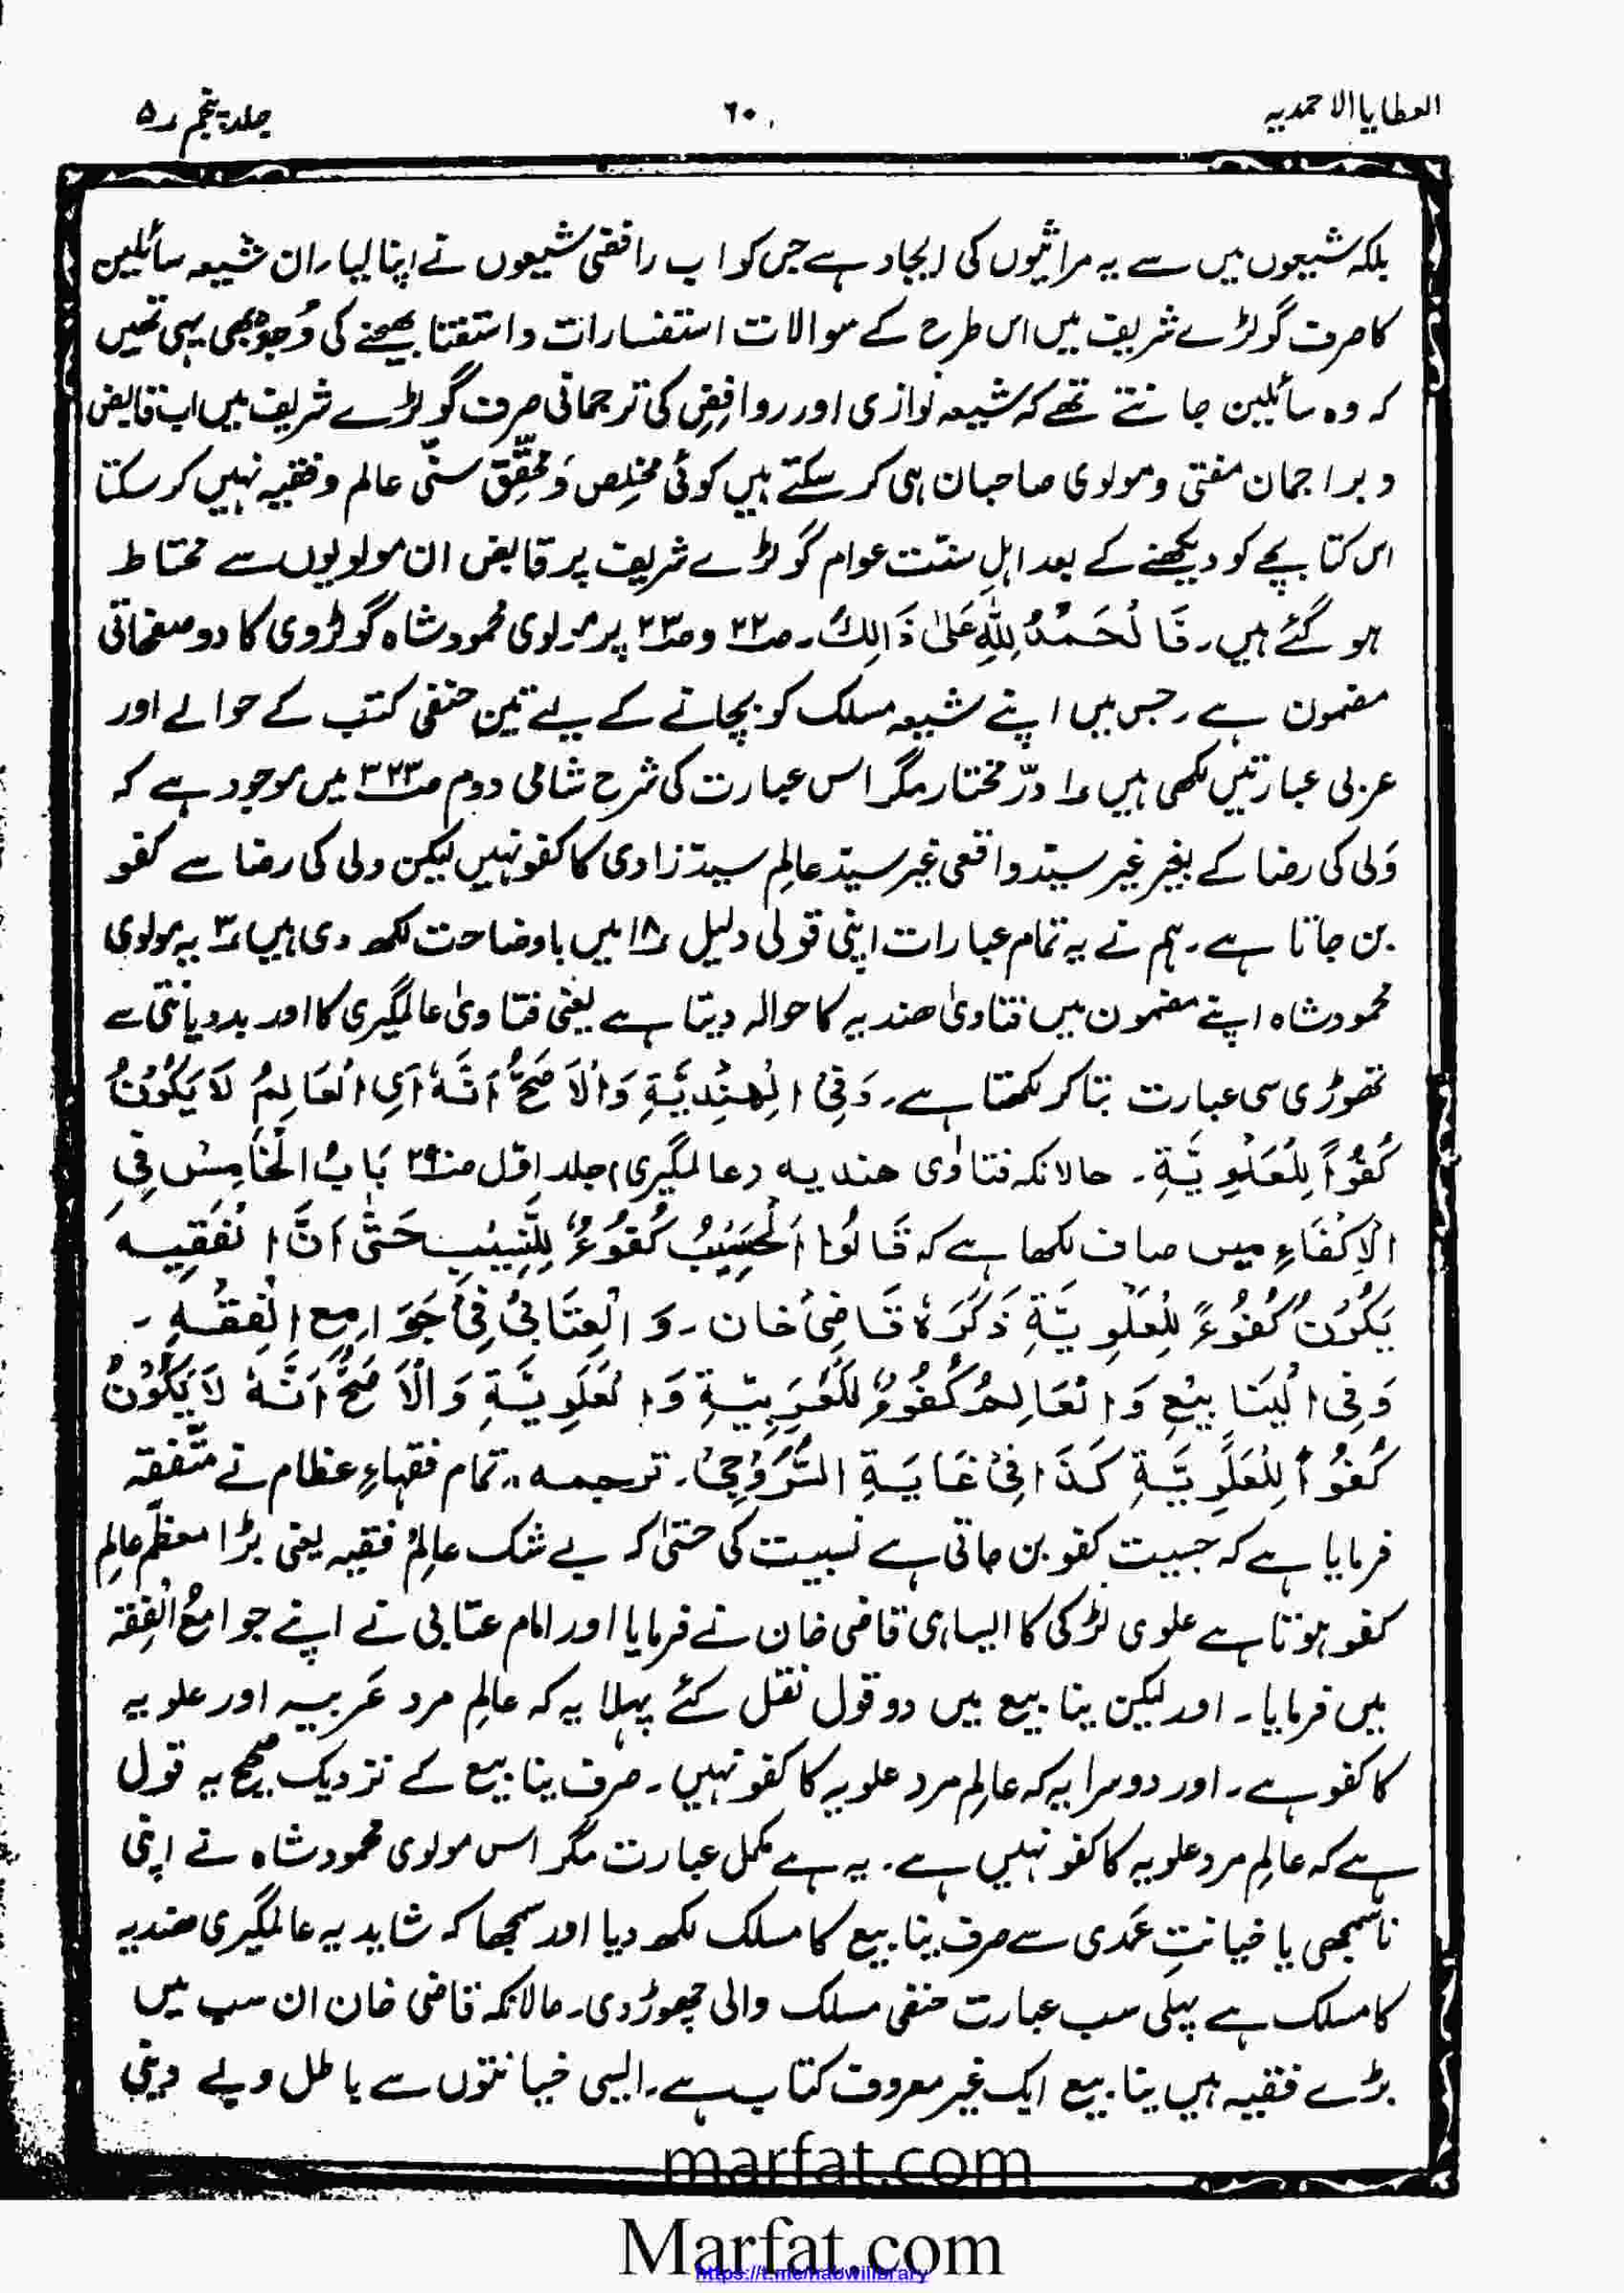 العطایا الاحمدیہ
۶۰
جلد پنجم ۵
بلکہ شیعوں میں سے یہ مراثیوں کی ایجاد ہے جس کو اب رافضی شیعوں نے اپنا لیا۔ ان شیعہ سائلین
کا صرف گولڑے شریف میں اس طرح کے سوالات استفسارات و استفتا بھیجنے کی وُجوہ بھی یہی تھیں
کہ وہ سائلین جانتے تھے کہ شیعہ نوازی اور روافِض کی ترجمانی صرف گولڑے شریف میں اب قابض
و براجمان مفتی و مولوی صاحبان ہی کر سکتے ہیں کوئی مخلِص وَ محقِّق سنّی عالم و فقیہ نہیں کر سکتا
اس کتابچے کو دیکھنے کے بعد اہلِ سنّت عوام گولڑے شریف پر قابض ان مولویوں سے محتاط
ہو گئے ہیں۔ فَالْحَمْدُ لِلّٰہِ عَلیٰ ذَالِکَ۔ صـ۲۲ و صـ۲۳ پر مولوی محمود شاہ گولڑوی کا دو صفحاتی
مضمون ہے۔ جس میں اپنے شیعہ مسلک کو بچانے کے لیے تین حنفی کتب کے حوالے اور
عربی عبارتیں لکھی ہیں ۱ درّ مختار مگر اس عبارت کی شرح شامی دوم صـ۳۲۳ میں موجود ہے کہ
وَلی کی رضا کے بغیر غیر سیّد واقعی غیر سیّد عالِم سیّد زادی کا کفو نہیں لیکن ولی کی رضا سے کفو
بن جاتا ہے۔ ہم نے یہ تمام عبارات اپنی قولی دلیل ۱۸ میں باوضاحت لکھ دی ہیں ۳ یہ مولوی
محمود شاہ اپنے مضمون میں فتاویٰ ھندیہ کا حوالہ دیتا ہے یعنی فتاویٰ عالمگیری کا اور بددیانتی سے
تھوڑی سی عبارت بتا کر لکھتا ہے۔ وَفِی الْھِنْدِیَّۃِ وَالْاَصَحُّ اَنَّہٗ اَیِ الْعَالِمُ لَا یَکُوْنُ
کُفُوًا لِلْعَلَوِیَّۃِ۔ حالانکہ فتاوٰی ھندیہ (عالمگیری) جلد اوّل صـ۲۹۰ بَابُ الْخَامِسْ فِی
الْاِکْفَاءِ میں صاف لکھا ہے کہ قَالُوْا اَلْحَسِیْبُ کُفُوءٌ لِلنَّسِیْبِ حَتّٰی اَنَّ الْفَقِیہ
یَکُوْنُ کُفُوءً لِلْعَلَوِیَّۃِ ذَکَرَہٗ قَاضِیْ خان۔ وَ الْعِتَابِیُ فِیْ جَوَامِعِ الْفِقْہِ۔
وَفِی الْیَنَابِیْعِ وَالْعَالِمُ کُفُوءٌ لِلْعَرَبِیَّۃِ وَالْعَلَوِیَّۃِ وَالْاَصَحُّ اَنَّہٗ لَا یَکُوْنُ
کُفُوًا لِلْعَلَوِیَّۃِ کَذَا فِیْ غَایَۃِ السُّرُوْجِیْ۔ ترجمہ۔ تمام فقہاءِ عظام نے متّفقہ
فرمایا ہے کہ حسیت کفو بن جاتی ہے نسبیت کی حتیٰ کہ بے شک عالِمُ فقیہ یعنی بڑا معظّم عالِم
کفو ہوتا ہے علوی لڑکی کا ایسا ہی قاضی خان نے فرمایا اور امام عتابی نے اپنے جوامعُ الْفِقہ
میں فرمایا۔ اور لیکن ینابیع میں دو قول نقل کئے پہلا یہ کہ عالِم مرد عَربیہ اور علویہ
کا کفو ہے۔ اور دوسرا یہ کہ عالِم مرد علویہ کا کفو نہیں۔ صرف ینابیع کے نزدیک صحیح یہ قول
ہے کہ عالِم مرد علویہ کا کفو نہیں ہے۔ یہ ہے مکمل عبارت مگر اس مولوی محمود شاہ نے اپنی
ناسمجھی یا خیانتِ عَمدی سے صرف ینابیع کا مسلک لکھ دیا اور سمجھا کہ شاید یہ عالمگیری ھندیہ
کا مسلک ہے پہلی سب عبارت حنفی مسلک والی چھوڑ دی۔ حالانکہ قاضی خان ان سب میں
بڑے فقیہ ہیں ینابیع ایک غیر معروف کتاب ہے۔ ایسی خیانتوں سے باطل و بے دینی
marfat.com
Marfat.com
https://t.me/nabwilibrary